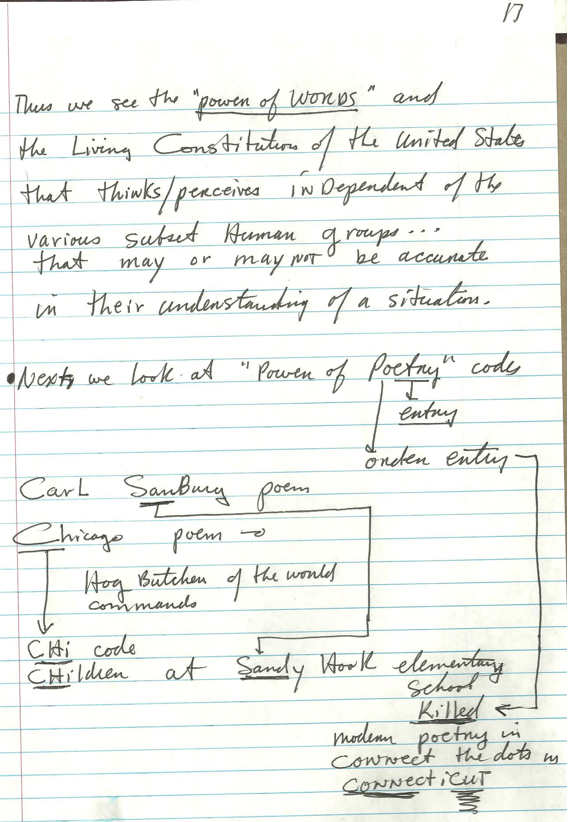 17
Thus we see the "power of WORDS" and
the Living Constitution of the United States
that thinks/perceives inDependent of the
various subset Human groups...
that may or may not be accurate
in their understanding of a situation.
•Next, we look at "Power of Poetry" codes
entry
order entry
CarL SanBurg poem
Chicago poem →
Hog Butcher of the world
commands
CHi code
CHildren at Sandy Hook elementary
School
Killed
modern poetry in
Connect the dots in
CONNECTiCUT